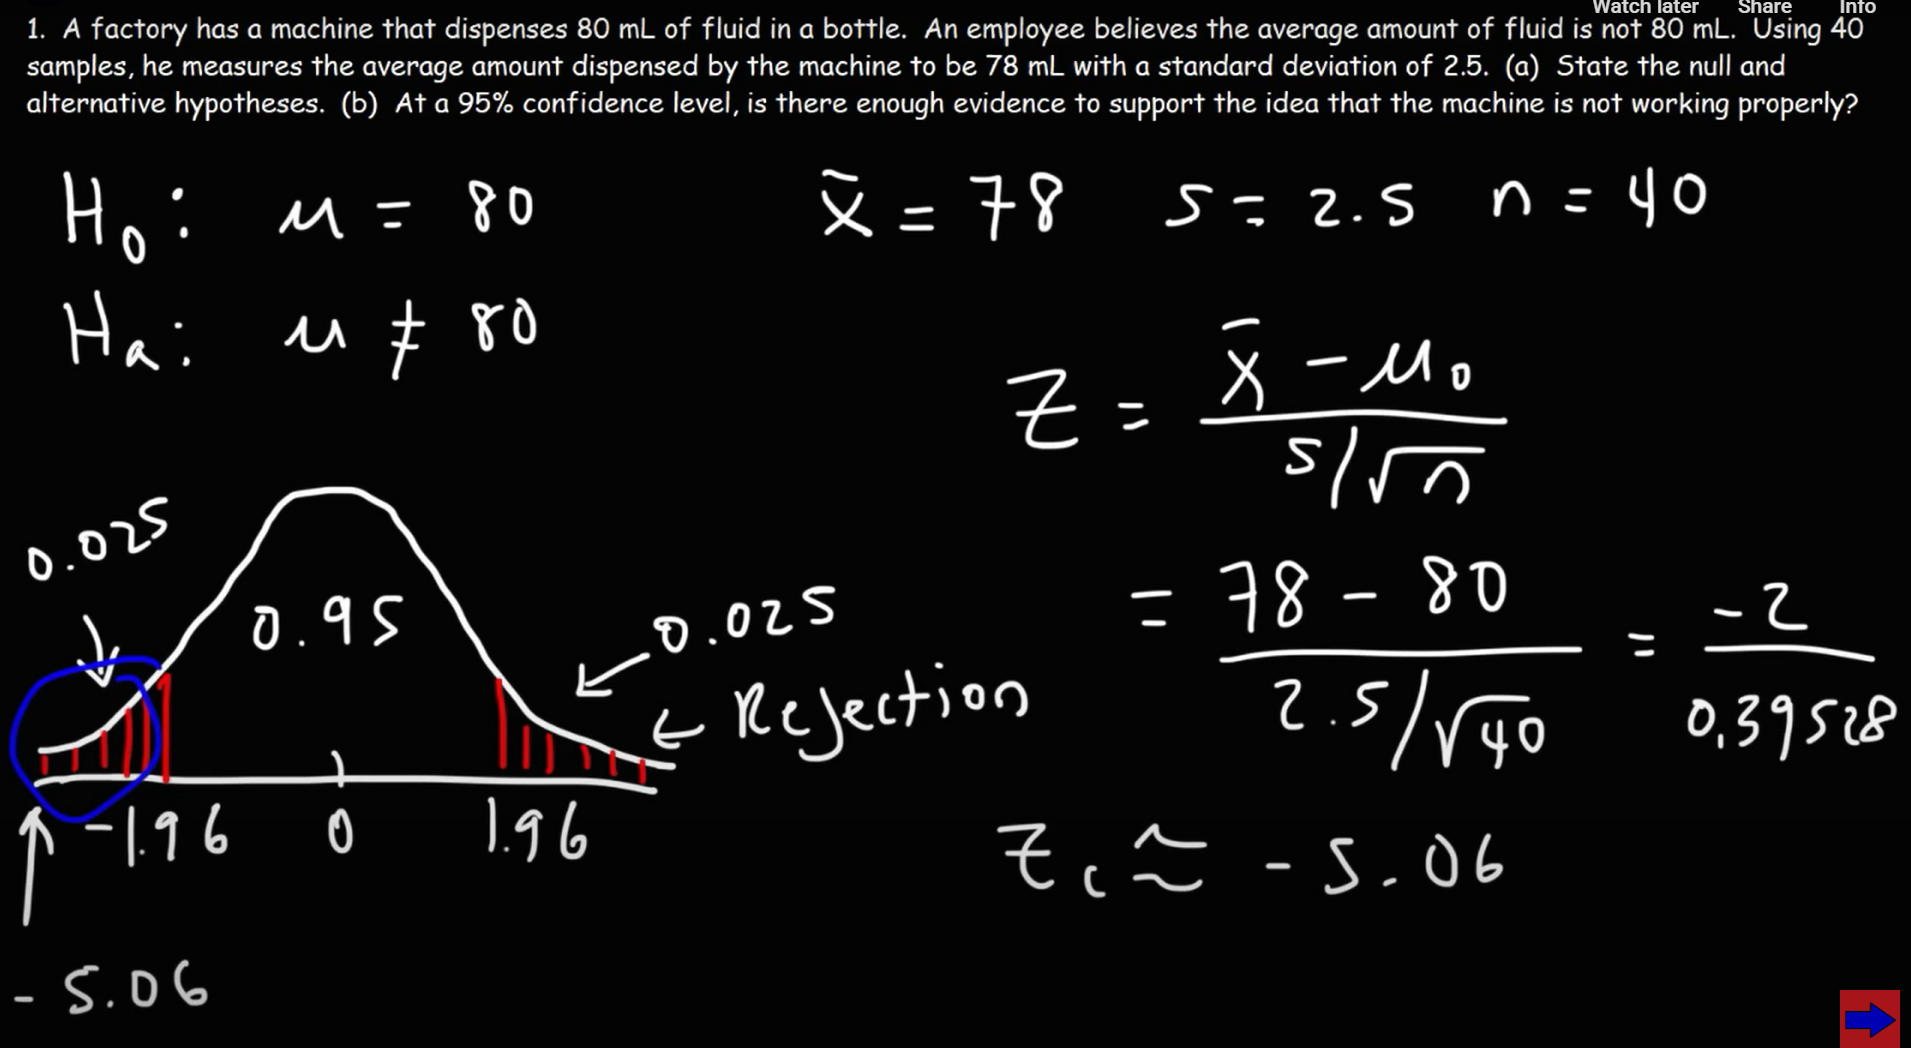 Watch later Share Info
1. A factory has a machine that dispenses 80 mL of fluid in a bottle. An employee believes the average amount of fluid is not 80 mL. Using 40
samples, he measures the average amount dispensed by the machine to be 78 mL with a standard deviation of 2.5. (a) State the null and
alternative hypotheses. (b) At a 95% confidence level, is there enough evidence to support the idea that the machine is not working properly?
H₀: μ = 80
x̄ = 78 s = 2.5 n = 40
Hₐ: μ ≠ 80
Z = x̄ - μ₀
s/√n
0.025
0.95
0.025
← Rejection
= 78 - 80 = -2
2.5/√40 0.39528
-1.96 0 1.96
Z꜀ ≈ -5.06
-5.06